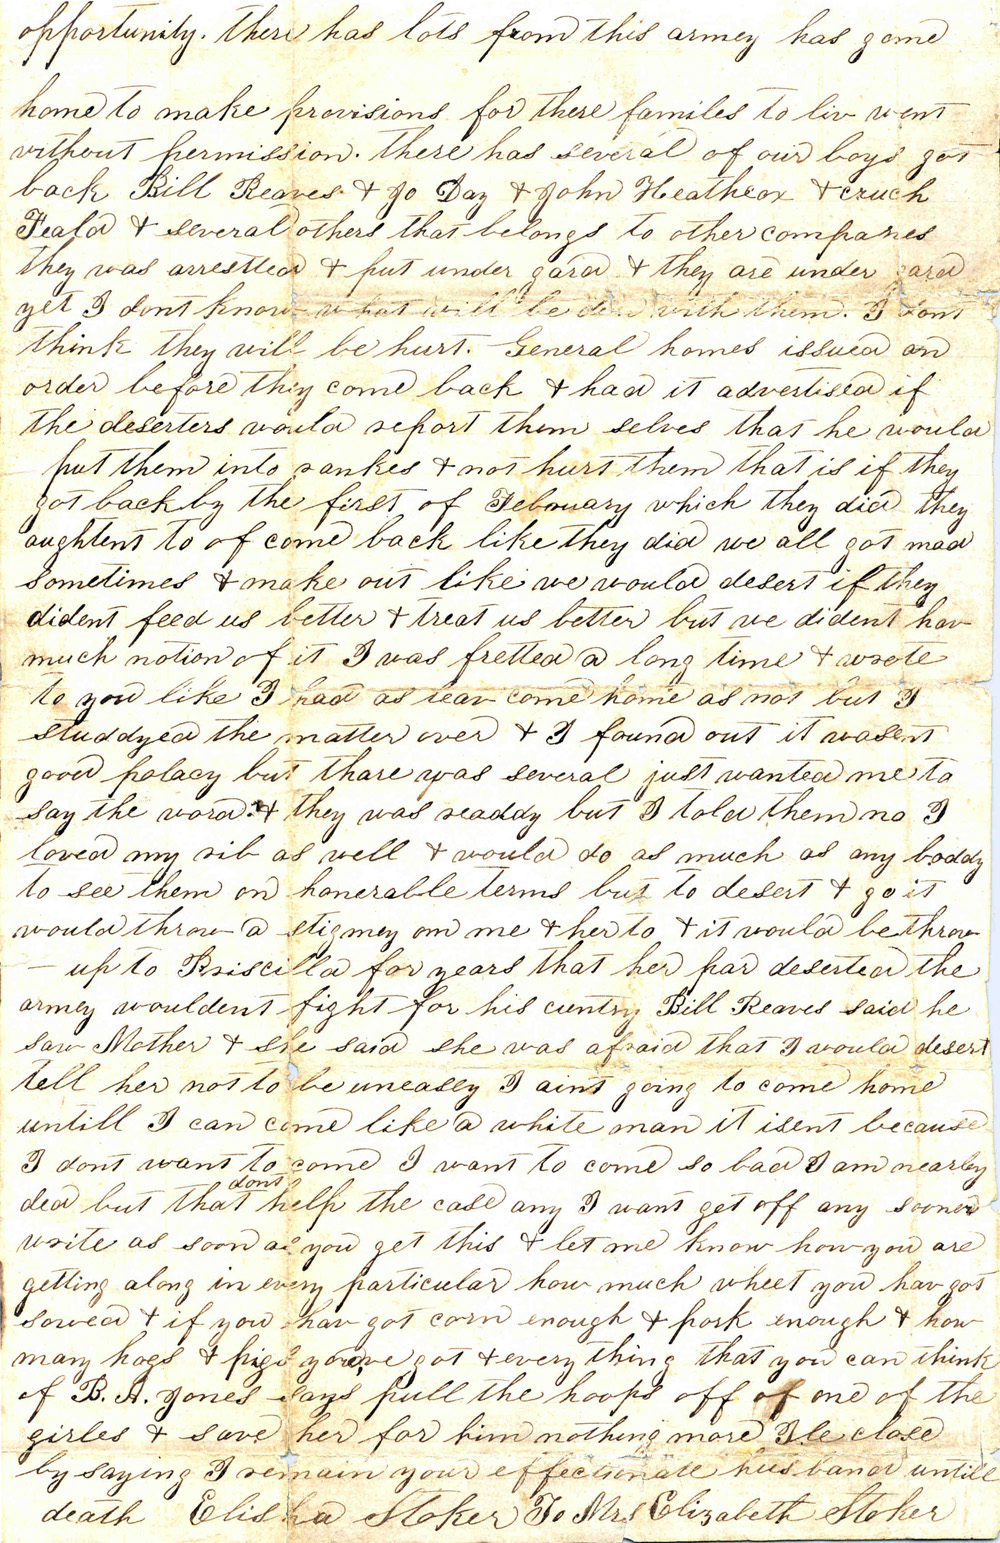 opportunity. there has lots from this armey has gone
home to make provisions for there familes to liv went
without permission. there has several of our boys got
back Bill Reaves & Jo Day & John Heathcox & cruch
Feald & several others that belongs to other companes
they was arrestted & put under gard & they are under gard
yet I dont know what will be don with them. I dont
think they will be hurt. General homes issued an
order before they come back & had it advertised if
the deserters would report them selves that he would
put them into rankes & not hurt them that is if they
got back by the first of February which they did they
aughtent to of come back like they did we all got mad
sometimes & make out like we would desert if they
dident feed us better & treat us better but we dident hav
much notion of it I was fretted a long time & wrote
to you like I had as leav come home as not but I
studdyed the matter over & I found out it wasent
good polacy but thare was several just wanted me to
say the word. & they was readdy but I told them no I
loved my rib as well & would do as much as any boddy
to see them on honerable terms but to desert & go it
would throw a stigmey on me & her to & it would be throw
– up to Priscilla for years that her par deserted the
armey wouldent fight for his cuntry Bill Reaves said he
saw Mother & she said she was afraid that I would desert
tell her not to be uneasey I aint going to come home
untill I can come like a white man it isent because
I dont want to come I want to come so bad I am nearley
ded but that dont help the case any I want get off any sooner
write as soon as you get this & let me know how you are
getting along in every particular how much wheet you hav got
sowed & if you hav got corn enough & pork enough & how
many hogs & pigs youve got & every thing that you can think
of B. A. Jones says pull the hoops off of one of the
girles & save her for him nothing more Ile close
by saying I remain your effectionate husband untill
death Elisha Stoker To Mrs Elizabeth Stoker